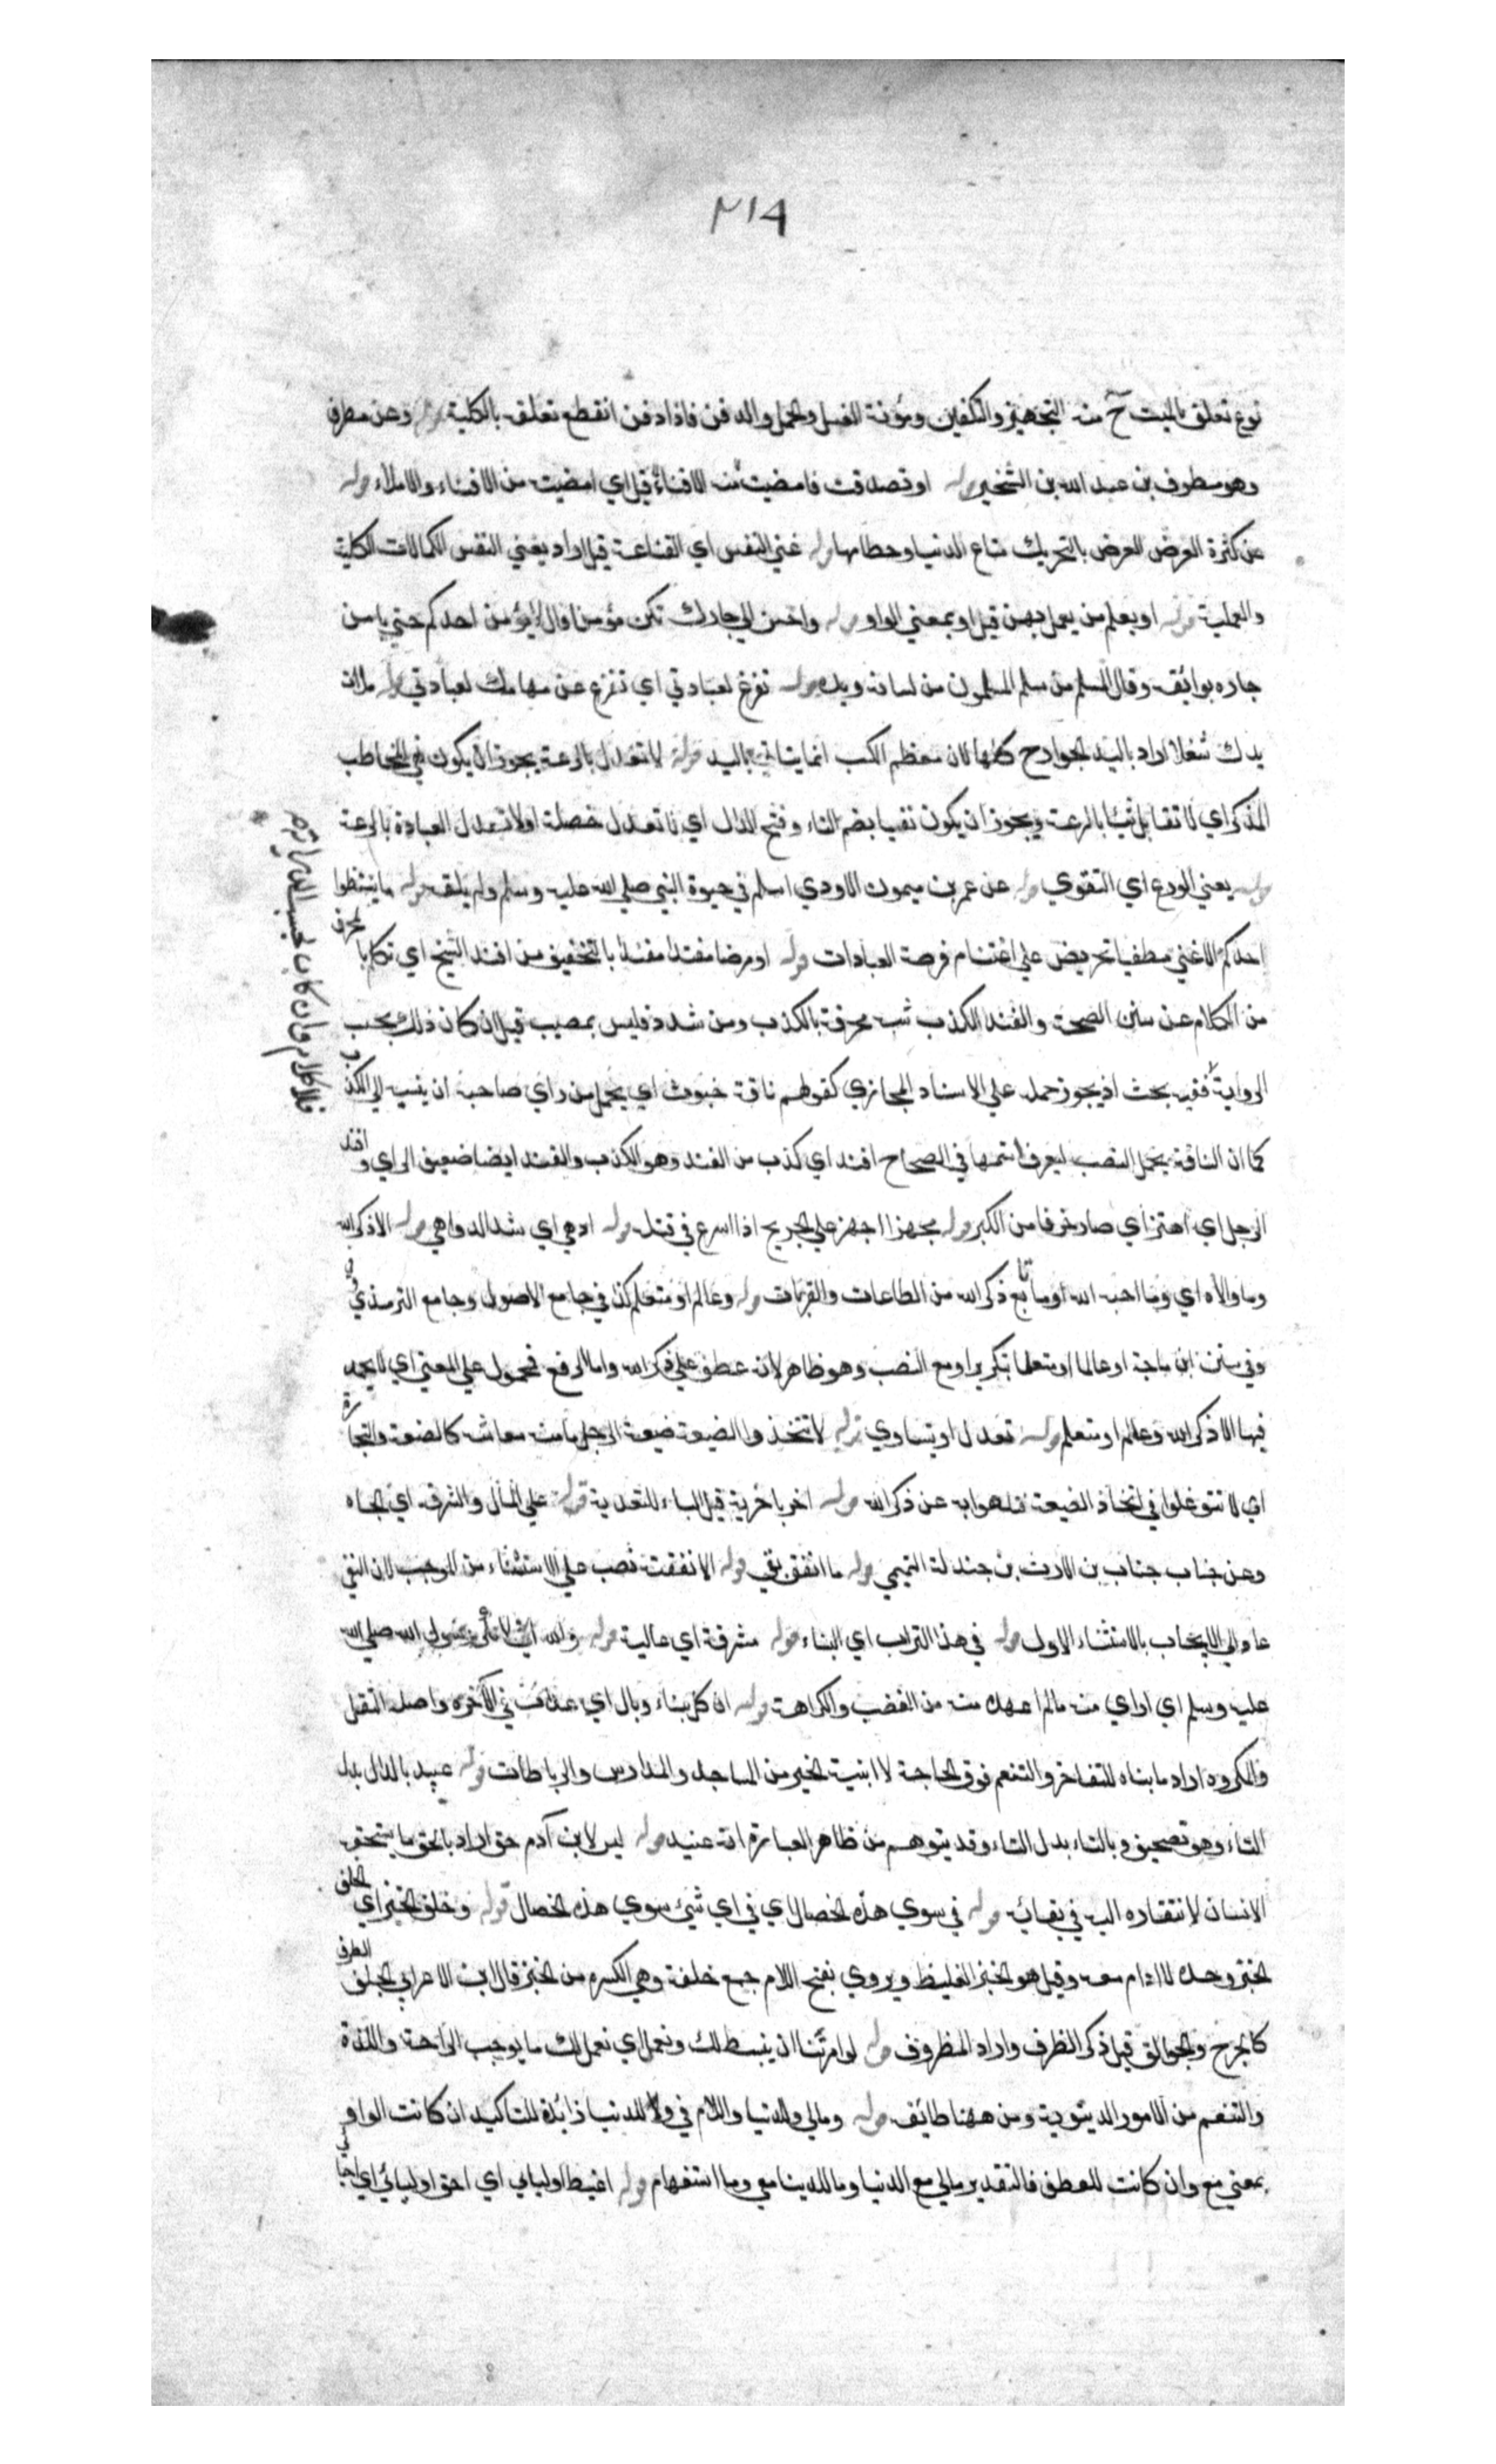 ٢١٤
نوع تعلق بالميت ح منه التجهيز والتكفين ومؤنة الغسل والحمل والدفن فاذا دفن انقطع تعلقه بالكلية قوله وعن مطرف
وهو مطرف بن عبد الله بن الشخير قوله او تصدقت فامضيت منه الافناء قيل اي امضيت من الافناء والابلاء قوله
عن كثرة العرض العرض بالتحريك متاع الدنيا وحطامها قوله غني النفس اي القناعة قيل اراد بغني النفس الكمالات
والعملية قوله او يعلم من يعمل بهن قيل او بمعني الواو قوله واحسن الي جارك تكن مؤمنا قال لا يؤمن احدكم حتي يامن
جاره بوائقه وقال المسلم من سلم المسلمون من لسانه ويده قوله تفرغ لعبادتي اي تفرغ عن مهامك لعبادتي قوله ملات
يدك شغلا اراد باليد الجوارح كلها لان معظم الكسب انما يتاتي باليد قوله لا تعدل بالرعة يجوز ان يكون المخاطب
المذكر اي لا تقابل شيئا بالرعة ويجوز ان يكون نفيا بضم التاء وفتح الدال اي لا تعدل خصلة اولا تعدل العبادة بالرعة
قوله يعني الورع اي التقوي قوله عن عمر بن ميمون الاودي اسلم في حيوة النبي صلي الله عليه وسلم ولم يلقه قوله ما ينتظر
احدكم الا غني مطغيا تحريض علي اغتنام فرصة العبادات قوله او مرضا مفندا بالتخفيف من افند الشيخ اي تكلم
من الكلام عن سنن الصحة والفند الكذب شبه بالكذب ومن شدد فليس بمصيب قيل ان كان ذلك بحسب
الرواية ففيه بحث اذ يجوز حمله علي الاسناد المجازي كقولهم ناقة اي يحمل من راي صاحبه ان ينسبه الي الكذب
كما ان الناقة يحمل في الصحاح افند اي كذب من الفند وهو الكذب والفند ايضا ضعيف الراي وافند
الرجل اي اهتر اي صار خرفا من الكبر قوله مجهزا اجهز علي الجريح اذا اسرع في قتله قوله ادهي اي اشد الدواهي قوله الا ذكر الله
وما والاه اي وما احبه الله او ما تابع ذكر الله من الطاعات والقربات قوله وعالم او متعلم كذا في جامع الاصول وجامع الترمذي
وفي سنن ابن ماجة او عالما او متعلما بتكرير او مع النصب وهو ظاهر لانه عطف علي ذكر الله واما الرفع فمحمول علي المعني اي لا يحمد
فيها الا ذكر الله وعالم او متعلم قوله تعدل او تساوي قوله لا تتخذوا الضيعة ضيعة الرجل ما منه معاشه كالصنعة والتجارة
اي لا تتوغلوا في اتخاذ الضيعة فتلهوا به عن ذكر الله قوله اضر باخرته قيل الباء للتعدية قوله علي المال والشرف اي الجاه
وعن خباب خباب بن الارت بن جندلة التميمي قوله ما انفق قوله الا نفقته نصب علي الاستثناء من الموجب لان النفي
عاد الي الايجاب بالاستثناء الاول قوله في هذا التراب اي البناء قوله مشرفة اي عالية قوله والله اني لانكر رسول الله صلي الله
عليه وسلم اي اري منه ما لم اعهده منه من الغضب والكراهة قوله ان كل بناء وبال اي عذاب في الاخرة واصله الثقل
والمكروه اراد ما بناه للتفاخر والتنعم فوق الحاجة لا ابنية الخير من المساجد والمدارس والرباطات قوله عبيد بالدال بدل
التاء وهو تصحيف وبالتاء بدل التاء وقد يتوهم من ظاهر العبارة انه عنيد قوله ليس لابن آدم حق اراد بالحق ما يستحقه
الانسان لافتقاره اليه في بقائه قوله في سوي هذه الخصال اي في اي شيئ سوي هذه الخصال قوله وجلف الخبز اي الجلف
الخبز وحده لا ادام معه وقيل هو الخبز الغليظ ويروي بفتح اللام جمع جلفة وهي الكسرة من الخبز قال ابن الاعرابي الجلف الظرف
كالخرج والجوالق قيل ذكر الظرف واراد المظروف قوله لو امرتنا ان ينبسط لك ونعمل اي نعمل لك ما يوجب الراحة واللذة
والتنعم من الامور الدنيوية ومن ههنا قوله ومالي وللدنيا واللام في وللدنيا زائدة للتاكيد ان كانت الواو
بمعني مع وان كانت للعطف فالتقدير مالي مع الدنيا وما للدنيا معي وما استفهام قوله اغبط اوليائي اي احق اوليائي